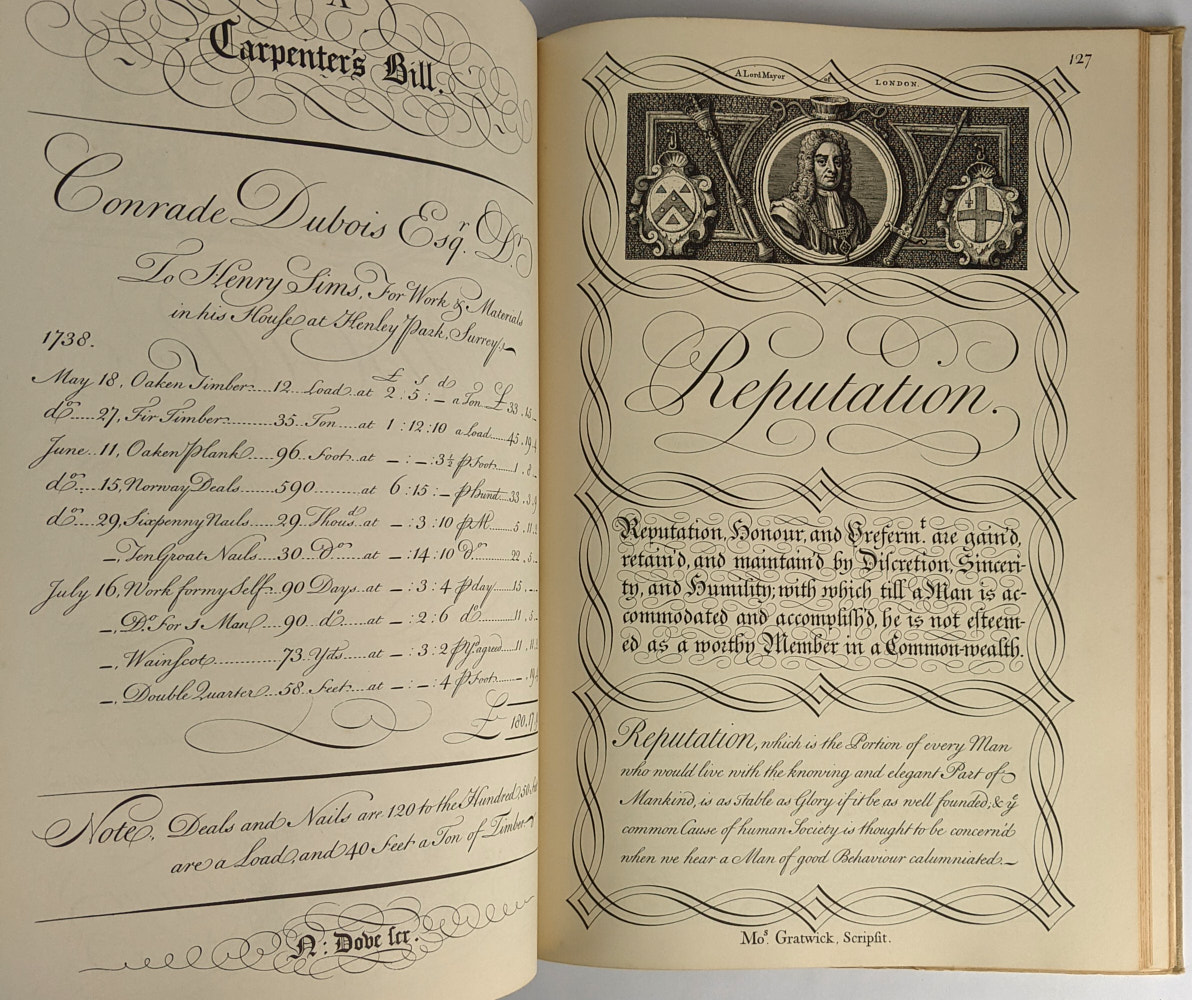 A
Carpenter's Bill.
Conrade Dubois Esqr. Dr.
To Henry Sims, For Work & Materials
in his Houſe at Henley Park, Surrey
1738.
£ s d
May 18, Oaken Timber 12 Load at 2 : 5 : – a Ton £ 33 . 15 –
do. 27, Fir Timber 35 Ton at 1 : 12 : 10 a Load 45 . 19
June 11, Oaken Plank 96 Foot at – : – : 3½ p Foot 1 . 8 –
do. 15, Norway Deals 590 at 6 : 15 : – p Hund. 33 . 3
do. 29, Sixpenny Nails 29 Thousd. at – : 3 : 10 p M. 5 . 11
–, Ten Groat Nails 30 Do. at – : 14 : 10 do. 22 . 5
July 16, Work for my Self 90 Days at – : 3 : 4 p day 15
–, Do. For 1 Man 90 do. at – : 2 : 6 do. 11 . 5
–, Wainſcot 73 Yds at – : 3 : 2 p Yd. agreed 11 . 11
–, Double Quarter 58 Feet at – : – : 4 p Foot – . 19
£ 180 . 17
Note, Deals and Nails are 120 to the Hundred, 50 Feet
are a Load, and 40 Feet a Ton of Timber.
N: Dove ſcr.
127
A Lord Mayor of LONDON.
Reputation.
Reputation, Honour, and Preferm.t are gain'd,
retain'd, and maintain'd by Diſcretion, Sinceri-
ty, and Humility; with which till a Man is ac-
commodated and accompliſh'd, he is not eſteem-
ed as a worthy Member in a Common-wealth.
Reputation, which is the Portion of every Man
who would live with the knowing and elegant Part of
Mankind, is as Stable as Glory if it be as well founded; & ye
common Cause of human Society is thought to be concern'd
when we hear a Man of good Behaviour calumniated.
Mos. Gratwick, Scripſit.